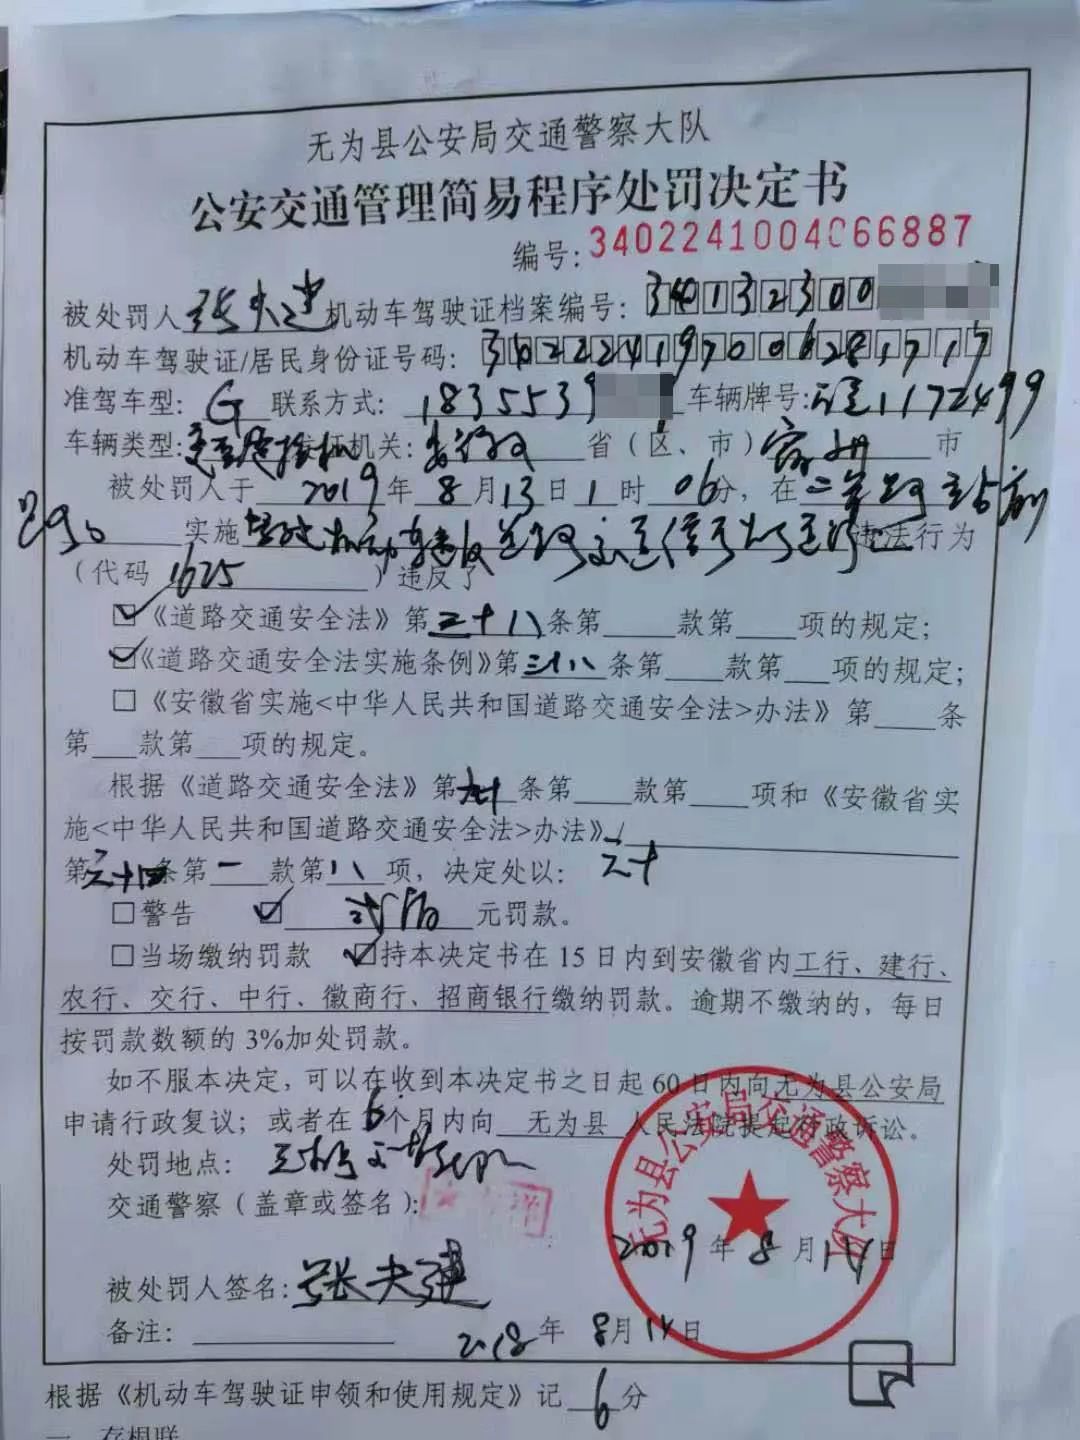 无为县公安局交通警察大队
公安交通管理简易程序处罚决定书
编号:3402241004066887
被处罚人张夫建机动车驾驶证档案编号:34132300
机动车驾驶证/居民身份证号码:342224197006281717
准驾车型:G 联系方式:1835539 车辆牌号:1172499
车辆类型: 发证机关:安徽 省(区、市)宿州 市
被处罚人于2019年8月13日1时06分,在
实施驾驶机动车违反道路交通信号灯通行违法行为
(代码1625)违反了
☑《道路交通安全法》第三十八条第 款第 项的规定;
☑《道路交通安全法实施条例》第三十八条第 款第 项的规定;
□《安徽省实施<中华人民共和国道路交通安全法>办法》第 条
第 款第 项的规定。
根据《道路交通安全法》第九十条第 款第 项和《安徽省实
施<中华人民共和国道路交通安全法>办法》/
第五十四条第一款第八项,决定处以:
□警告 ☑ 元罚款。
□当场缴纳罚款 ☑持本决定书在15日内到安徽省内工行、建行、
农行、交行、中行、徽商行、招商银行缴纳罚款。逾期不缴纳的,每日
按罚款数额的3%加处罚款。
如不服本决定,可以在收到本决定书之日起60日内向无为县公安局
申请行政复议;或者在6个月内向 无为县 人民法院提起行政诉讼。
处罚地点:
交通警察(盖章或签名):
无为县公安局交通警察大队
2019年8月14日
被处罚人签名:张夫建
备注:
2018年8月14日
根据《机动车驾驶证申领和使用规定》记6分
一、存根联